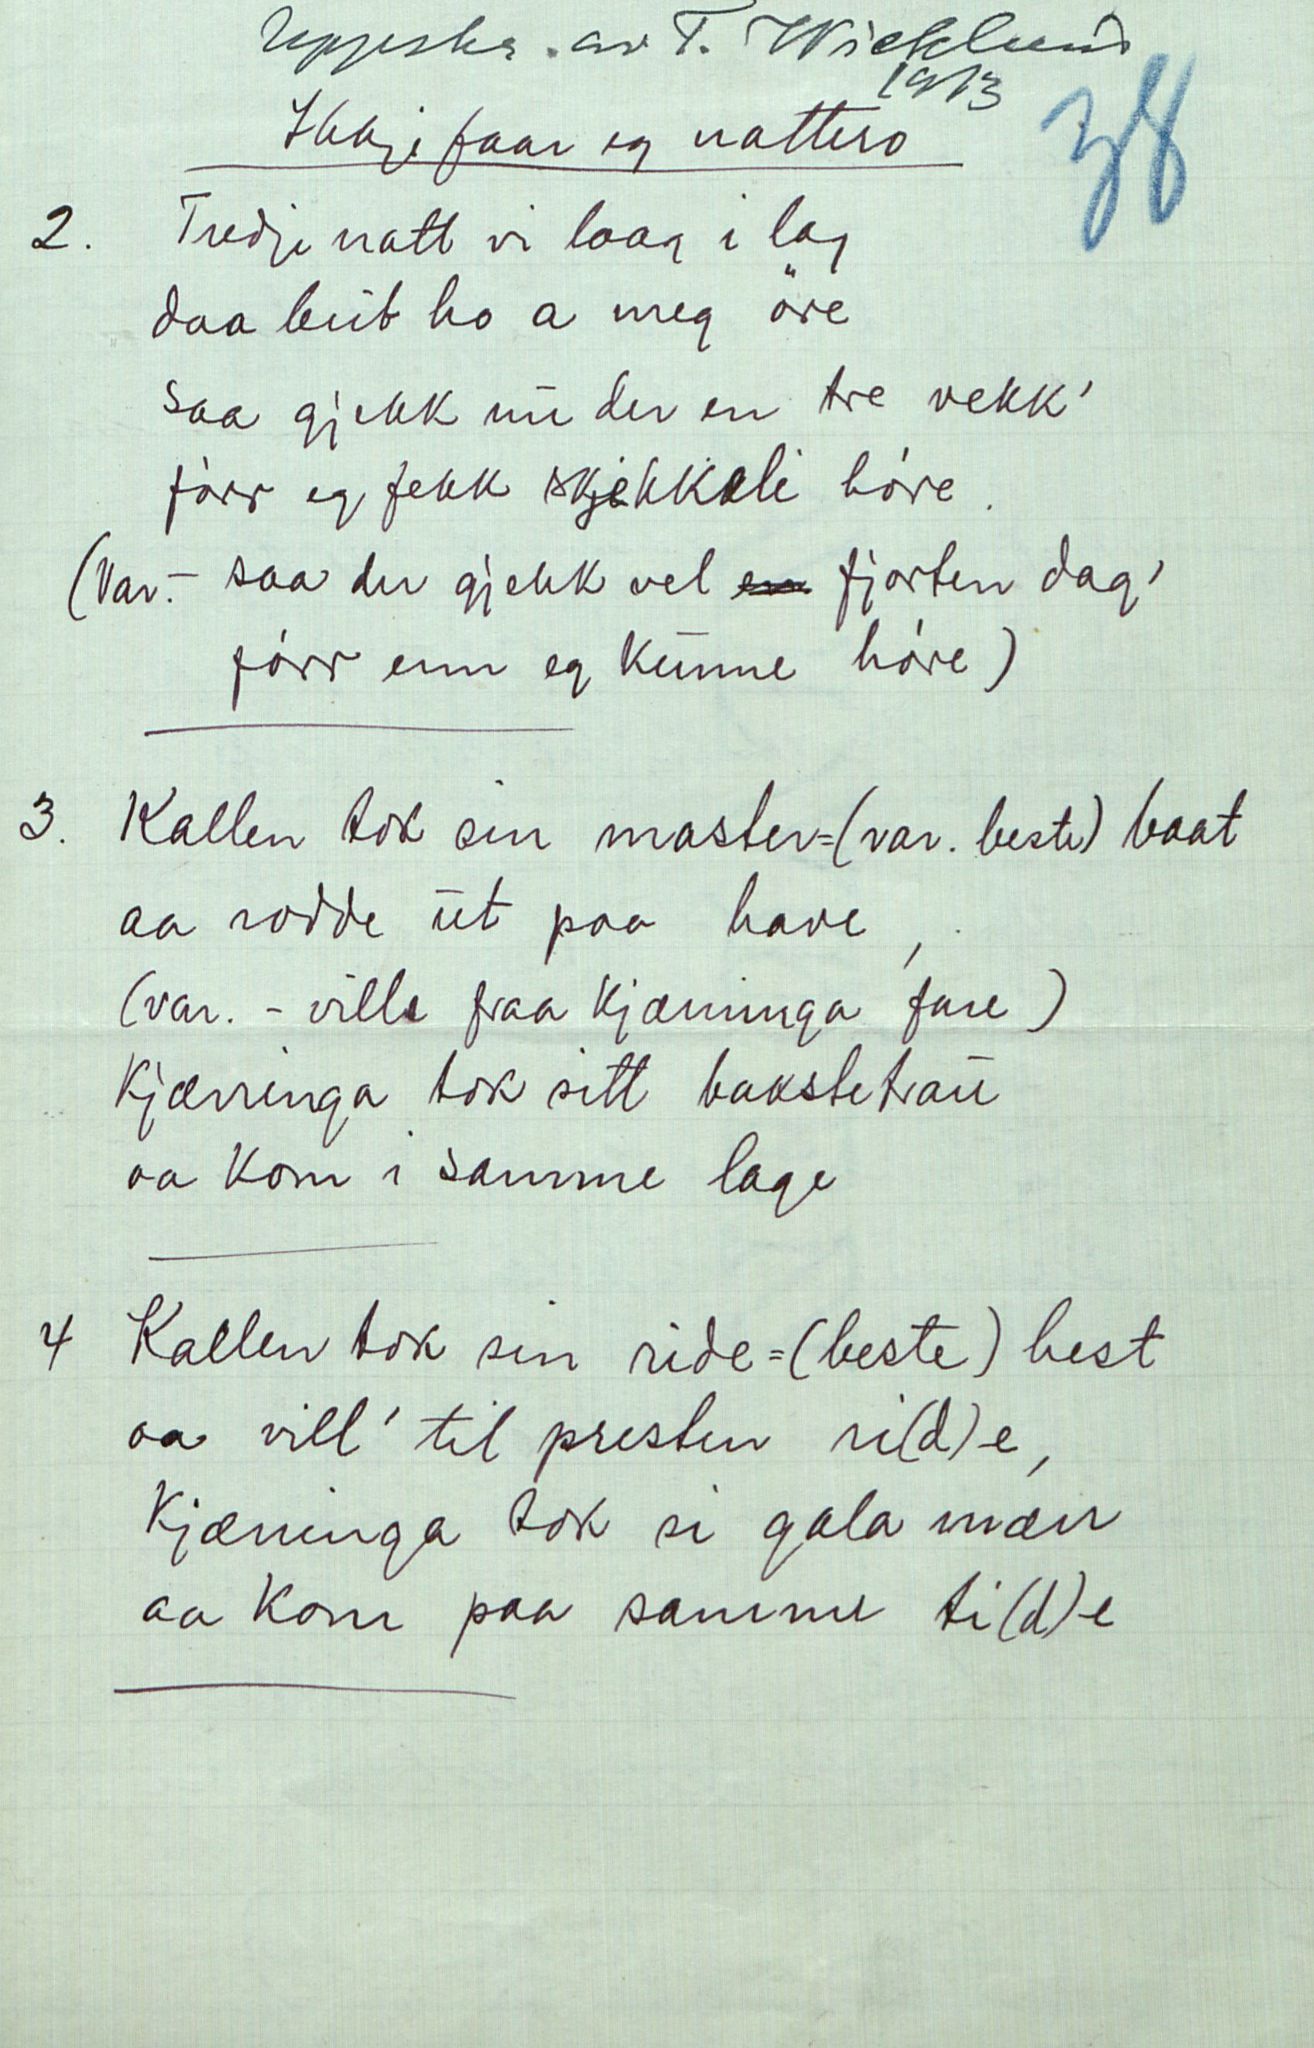 Uppskr. av T. Wicklund
1913
38
Ikkje faar eg nattero
2. Tredje natt vi laag i lag
daa beit ho a meg öre
saa gjekk nū der en tre vekk'
fórr eg fekk skjekkeli hóre.
(Var. - saa der gjekk vel en fjorten dag'
fórr enn eg kūnne hóre)
3. Kallen tok sin master=(var. beste) baat
aa rodde ūt paa have,
(var. - ville fraa kjærringa fare)
Kjærringa tok sitt bakstetraū
aa kom i samme lage
4 Kallen tok sin ride=(beste) hest
aa vill' til presten ri(d)-e,
Kjærringa tok si gala mærr
aa kom paa samme ti(d)-e